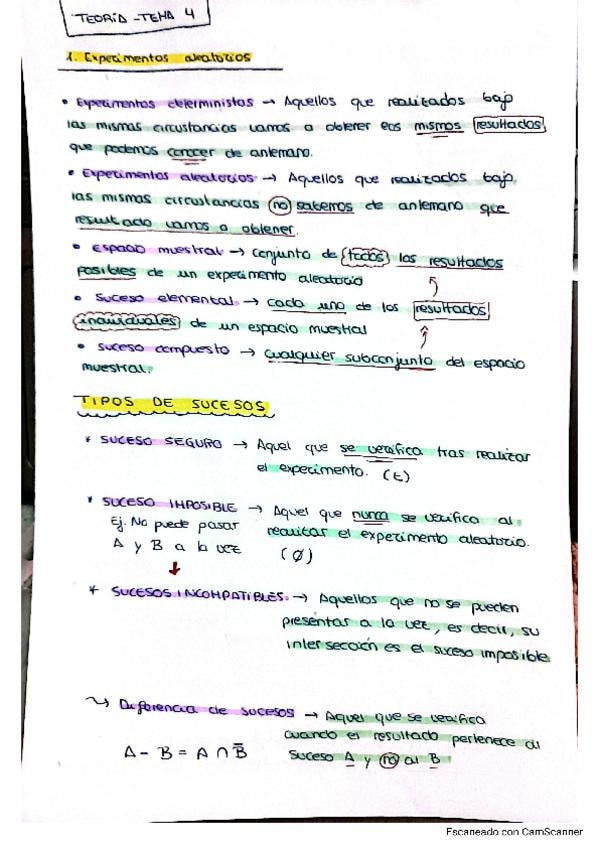 TEORÍA - TEMA 4
1. Experimentos aleatorios
• Experimentos deterministas → Aquellos que realizados bajo
las mismas circustancias vamos a obtener los mismos resultados,
que podemos conocer de antemano.
• Experimentos aleatorios → Aquellos que realizados bajo
las mismas circustancias no sabemos de antemano que
resultado vamos a obtener.
• Espacio muestral → Conjunto de todos los resultados
posibles de un experimento aleatorio
• Suceso elemental → cada uno de los resultados
individuales de un espacio muestral
• Suceso compuesto → cualquier subconjunto del espacio
muestral.
TIPOS DE SUCESOS
* SUCESO SEGURO → Aquel que se verifica tras realizar
el experimento. (E)
* SUCESO IMPOSIBLE → Aquel que nunca se verifica al
Ej. No puede pasar realizar el experimento aleatorio.
A y B a la vez (Ø)
* SUCESOS INCOMPATIBLES → Aquellos que no se pueden
presentar a la vez, es decir, su
intersección es el suceso imposible
Diferencia de sucesos → Aquel que se verifica
cuando el resultado pertenece al
A - B = A ∩ B̅ suceso A y no al B.
Escaneado con CamScanner